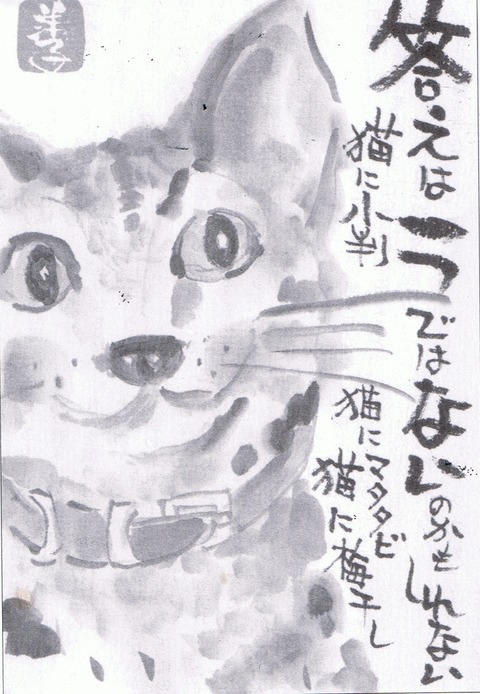 答えは一つではないのかもしれない
猫に小判
猫にマタタビ
猫に梅干し